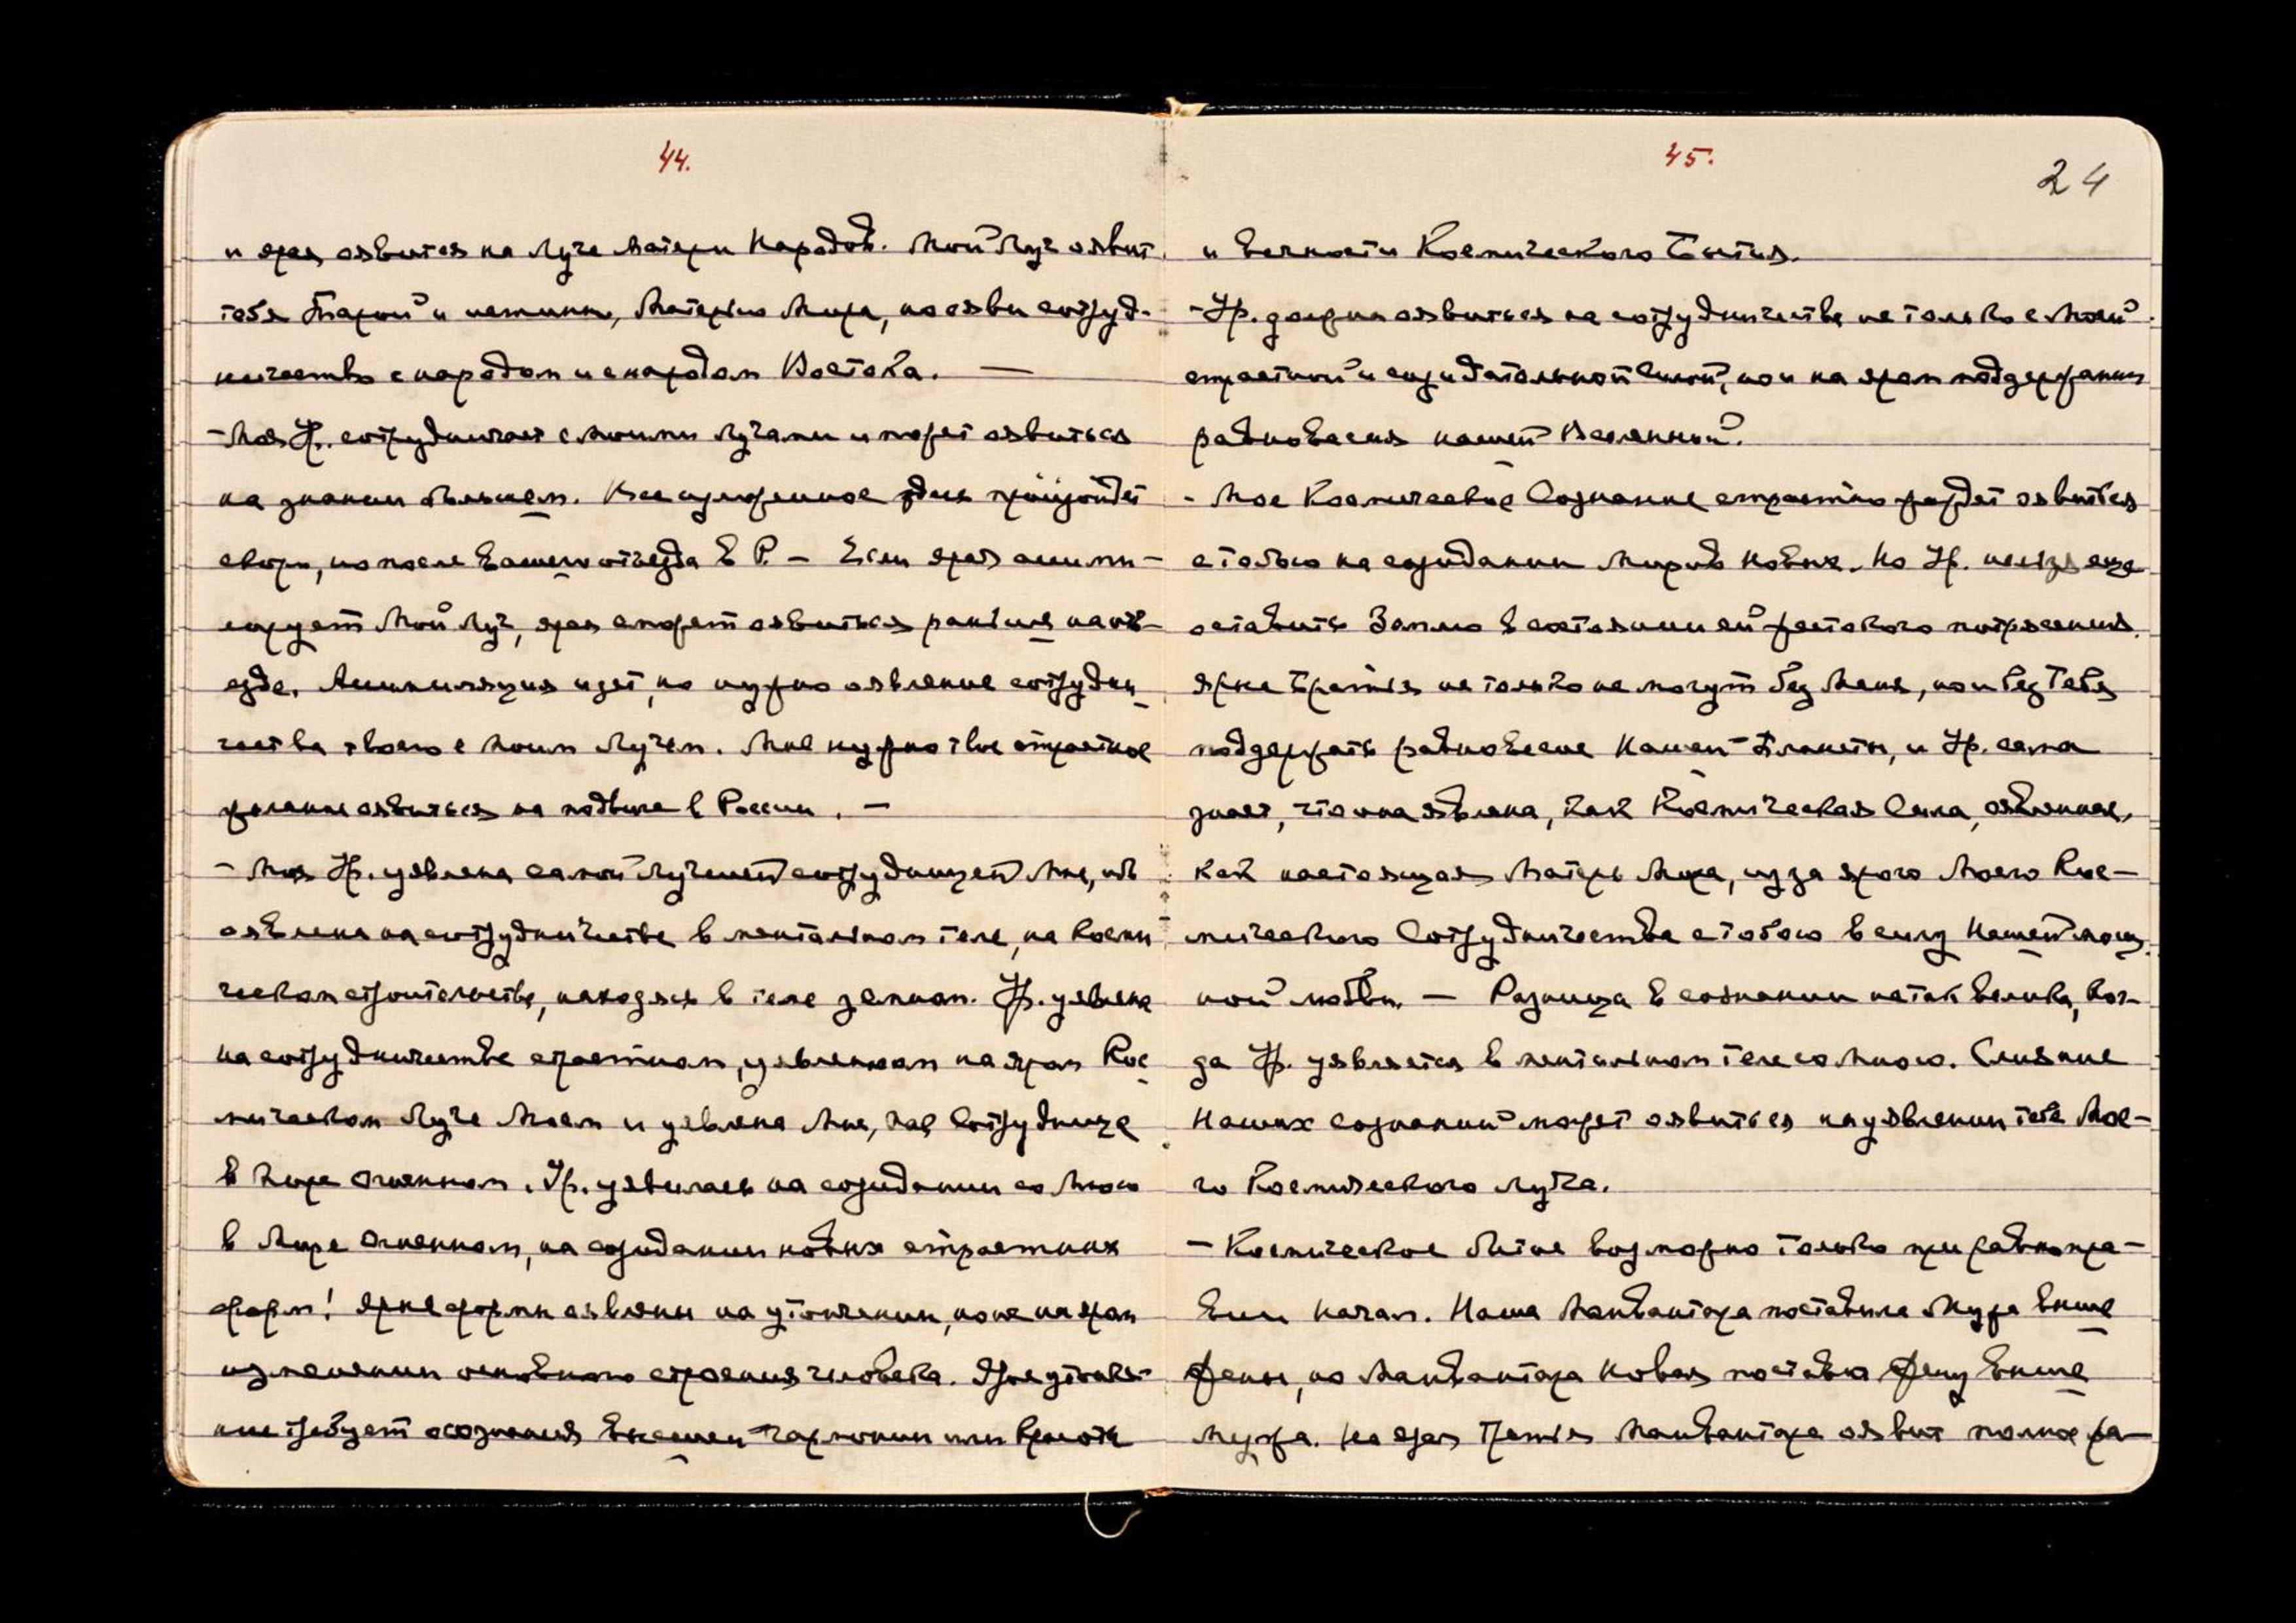 44.
и ярая оявится на Луче Матери Народов. Мой Луч оявит
тебя Тарой и истинно, Матерью Мира, но яви сотруд-
ничество с народом и с народом Востока. —
- Моя Ур. сотрудничает с моими Лучами и может оявиться
на знании большем. Все изложенное здесь произойдет
скоро, но после Вашего отъезда в Р. — Если ярая ассими-
лирует Мой Луч, ярая сможет оявиться раньше на отъ-
езде. Ассимиляция идет, но нужно оявление сотрудни-
чества твоего с Моим Лучем. Мне нужно твое страстное
желание оявиться на подвиге в России. —
- Моя Ур. уявлена самой лучшей сотрудницей Мне, ибо
оявлена на сотрудничестве в ментальном теле, на косми-
ческом строительстве, находясь в теле земном. Ур. уявлена
на сотрудничестве страстном, уявленном на яром Кос-
мическом Луче Моем и уявлена Мне, как Сотрудница
в Мире Огненном. Ур. уявилась на созидании со Мною
в Мире Огненном, на созидании новых страстных
форм! Ярые формы оявлены на утончении, но не на яром
изменении основного строения человека. Ярое утонче-
ние требует осознания высшей гармонии или Красоты
45.
24
и вечности Космического Бытия.
- Ур. должна оявиться на сотрудничестве не только с Моей
страстной и созидательной Силой, но и на яром поддержании
равновесия нашей Вселенной.
- Мое Космическое Сознание страстно жаждет оявиться
с тобою на созидании Миров Новых. Но Ур. нельзя еще
оставить Землю в состоянии ей жестокого потрясения.
Ярые Братья не только не могут без Меня, но и без Тебя
поддержать равновесие Нашей Планеты, и Ур. сама
знает, что она явлена, как Космическая Сила, оявленная,
как настоящая Матерь Мира, из за ярого Моего Кос-
мического Сотрудничества с тобою в силу Нашей мощ-
ной любви. — Разница в сознании не так велика, ког-
да Ур. уявляется в ментальном теле со Мною. Слияние
Наших сознаний может оявиться на уявлении тебе Мое-
го Космического луча.
- Космическое Бытие возможно только при равнопра-
вии Начал. Наша Манвантара поставила Мужа выше
Жены, но Манвантара Новая поставит Жену выше
Мужа. Но ярая Третья Манвантара оявит полное ра-